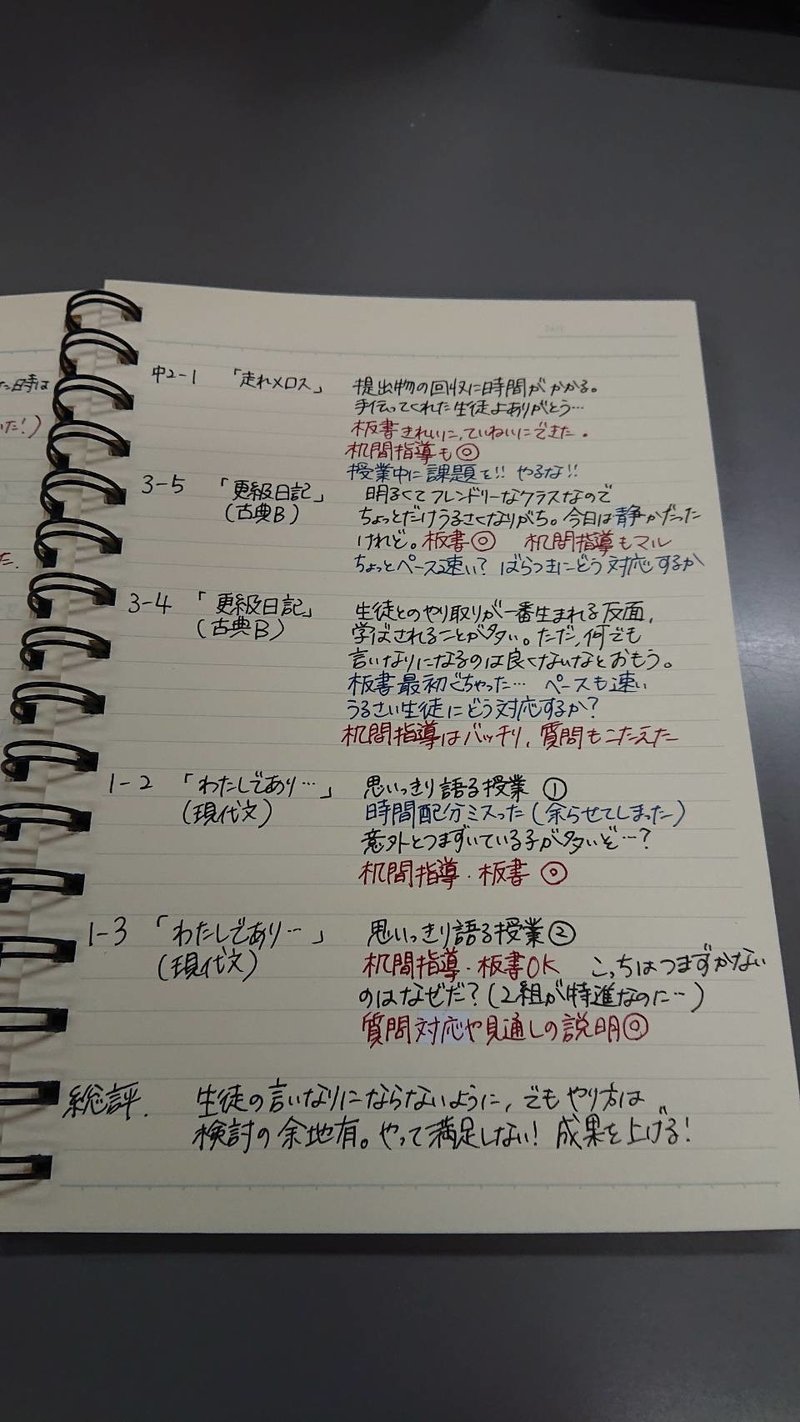 た時は
た!)
た.
中2-1 「走れメロス」 提出物の回収に時間がかかる。
手伝ってくれた生徒よありがとう…
板書きれいに、ていねいにできた。
机間指導も◎
授業中に課題を!! やるな!!
3-5 「更級日記」 明るくてフレンドリーなクラスなので
(古典B) ちょっとだけうるさくなりがち。今日は静かだった
けれど。板書◎ 机間指導もマル
ちょっとペース速い? ばらつきにどう対応するか
3-4 「更級日記」 生徒とのやり取りが一番生まれる反面,
(古典B) 学ばされることが多い。ただ,何でも
言いなりになるのは良くないなとおもう。
板書最初ぐちゃった… ペースも速い
うるさい生徒にどう対応するか?
机間指導はバッチリ,質問もこたえた
1-2 「わたしであり…」 思いっきり語る授業 ①
(現代文) 時間配分ミスった(余らせてしまった)
意外とつまずいている子が多いぞ…?
机間指導・板書 ◎
1-3 「わたしであり…」 思いっきり語る授業②
(現代文) 机間指導・板書OK こっちはつまずかない
のはなぜだ?(2組が特進なのに…)
質問対応や見通しの説明◎
総評. 生徒の言いなりにならないように,でもやり方は
検討の余地有。やって満足しない! 成果を上げる!